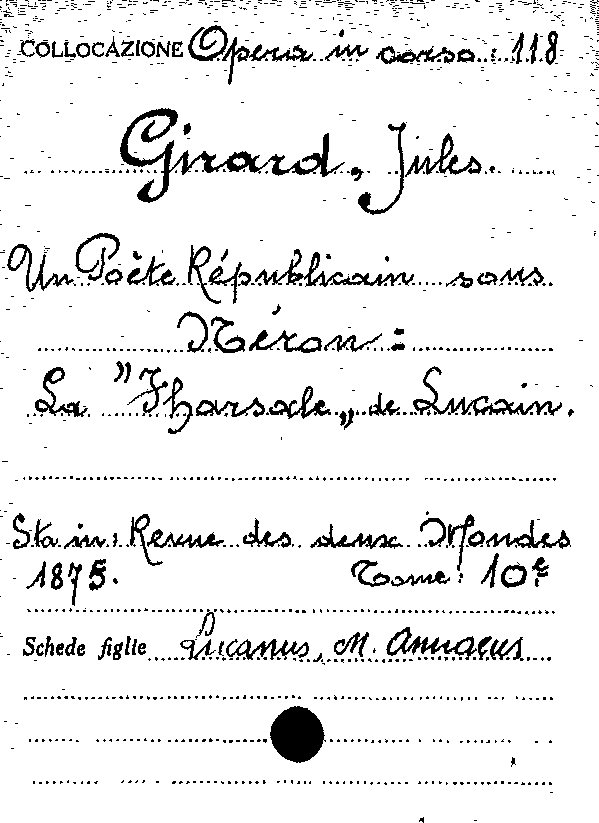 COLLOCAZIONE Opera in corso: 118
Girard, Jules.
Un Poëte Républicain sous
Néron:
La "Pharsale„ de Lucain.
Sta in: Revue des deux Mondes
1875. Tome: 10e
Schede figlie Lucanus, M. Annaeus